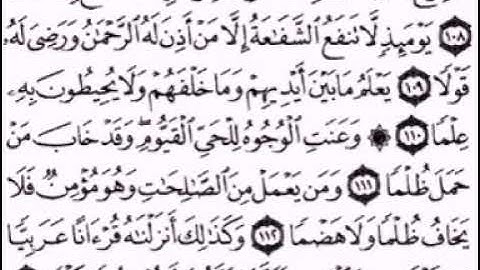 ۝١٠٨ يَوْمَئِذٍ لَّا تَنفَعُ الشَّفَاعَةُ إِلَّا مَنْ أَذِنَ لَهُ الرَّحْمَٰنُ وَرَضِيَ لَهُ
قَوْلًا ۝١٠٩ يَعْلَمُ مَا بَيْنَ أَيْدِيهِمْ وَمَا خَلْفَهُمْ وَلَا يُحِيطُونَ بِهِ
عِلْمًا ۝١١٠ ۞ وَعَنَتِ الْوُجُوهُ لِلْحَيِّ الْقَيُّومِ ۖ وَقَدْ خَابَ مَنْ
حَمَلَ ظُلْمًا ۝١١١ وَمَن يَعْمَلْ مِنَ الصَّالِحَاتِ وَهُوَ مُؤْمِنٌ فَلَا
يَخَافُ ظُلْمًا وَلَا هَضْمًا ۝١١٢ وَكَذَٰلِكَ أَنزَلْنَاهُ قُرْءَانًا عَرَبِيًّا